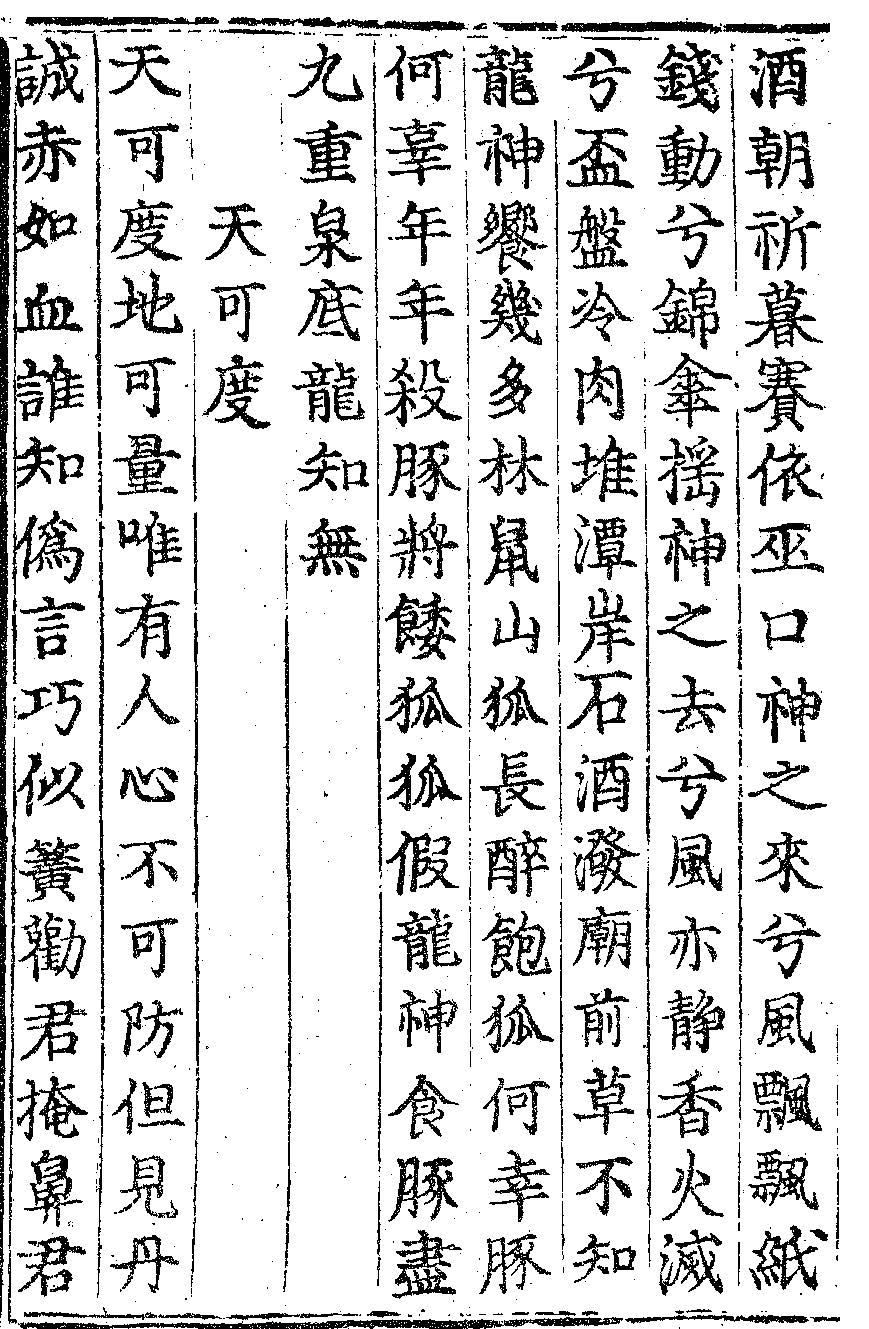 酒朝祈暮賽依巫口神之來兮風飄飄紙
錢動兮錦傘揺神之去兮風亦静香火滅
兮盃盤冷肉堆潭岸石酒潑廟前草不知
龍神饗幾多林鼠山狐長醉飽狐何幸豚
何辜年年殺豚將餧狐狐假龍神食豚盡
九重泉底龍知無
天可度
天可度地可量唯有人心不可防但見丹
誠赤如血誰知僞言巧似簧勸君掩鼻君